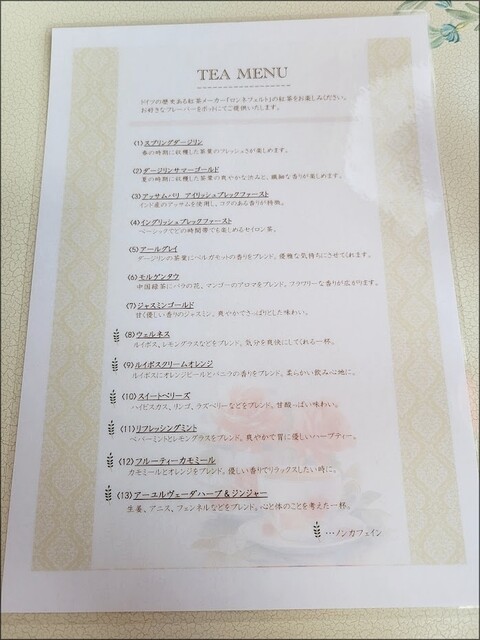 TEA MENU
ドイツの歴史ある紅茶メーカー「ロンネフェルト」の紅茶をお楽しみください。
お好きなフレーバーをポットにてご提供いたします。
(1)スプリングダージリン
春の時期に収穫した茶葉のフレッシュさが楽しめます。
(2)ダージリンサマーゴールド
夏の時期に収穫した茶葉の爽やかな渋みと、繊細な香りが楽しめます。
(3)アッサムバリ アイリッシュブレックファースト
インド産のアッサムを使用し、コクのある香りが特徴。
(4)イングリッシュブレックファースト
ベーシックでどの時間帯でも楽しめるセイロン茶。
(5)アールグレイ
ダージリンの茶葉にベルガモットの香りをブレンド。優雅な気持ちにさせてくれます。
(6)モルゲンタウ
中国緑茶にバラの花、マンゴーのアロマをブレンド。フラワリーな香りが広がります。
(7)ジャスミンゴールド
甘く優しい香りのジャスミン。爽やかでさっぱりとした味わい。
(8)ウェルネス
ルイボス、レモングラスなどをブレンド。気分を爽快にしてくれる一杯。
(9)ルイボスクリームオレンジ
ルイボスにオレンジピールとバニラの香りをブレンド。柔らかい飲み心地に。
(10)スイートベリーズ
ハイビスカス、リンゴ、ラズベリーなどをブレンド。甘酸っぱい味わい。
(11)リフレッシングミント
ペパーミントとレモングラスをブレンド。爽やかで胃に優しいハーブティー。
(12)フルーティーカモミール
カモミールとオレンジをブレンド。優しい香りでリラックスしたい時に。
(13)アーユルヴェーダハーブ&ジンジャー
生姜、アニス、フェンネルなどをブレンド。心と体のことを考えた一杯。
…ノンカフェイン